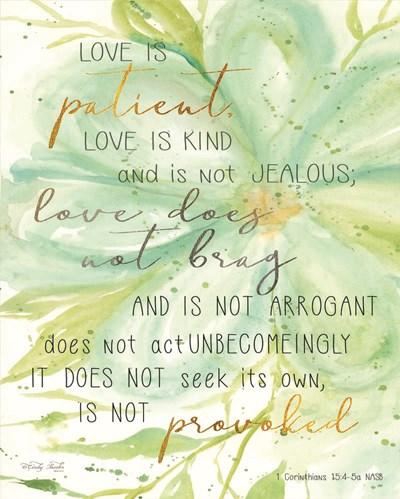 LOVE IS
patient,
LOVE IS KIND
and is not JEALOUS;
love does
not brag
AND IS NOT ARROGANT
does not act UNBECOMEINGLY
IT DOES NOT seek its own,
IS NOT provoked
©Cindy Jacobs
1 Corinthians 15:4-5a NASB